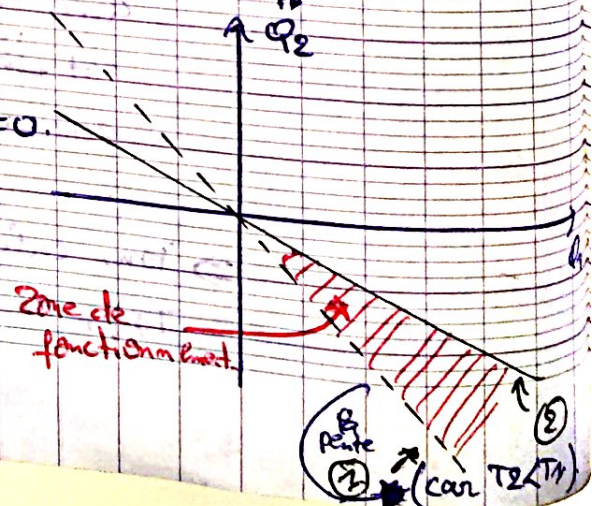 Q2
=0.
Zone de
fonctionnement
la
pente
①
②
(car T2<T1)